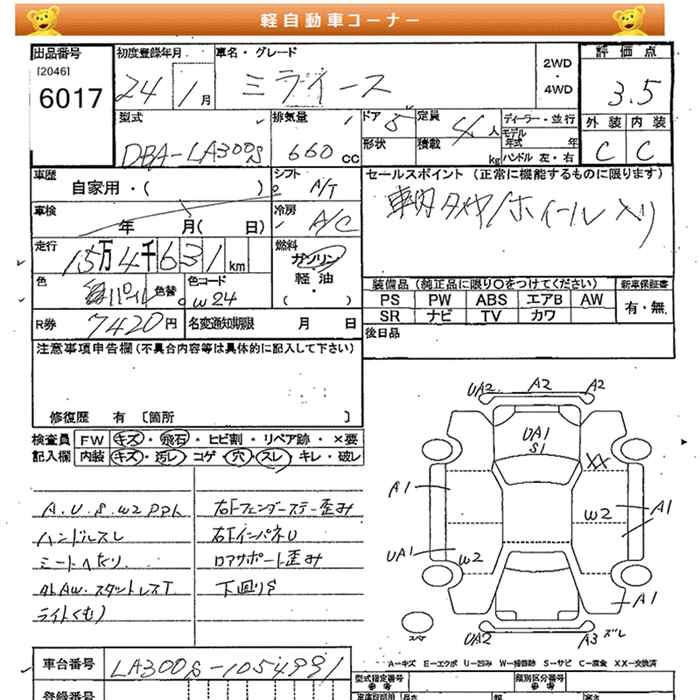 軽自動車コーナー
出品番号
[2046]
6017
初度登録年月
24 1月
車名・グレード
ミライース
2WD
・
4WD
評価点
3.5
外装 内装
C C
型式
DBA-LA300S
排気量
660 CC
ドア 5
形状
定員 4人
積載 kg
ディーラー・並行
モデル年式 年
ハンドル 左・右
車歴
自家用・( )
シフト
A/T
セールスポイント(正常に機能するものに限ります)
車内タイヤ/ホイール入り
車検
年 月( 日)
冷房
A/C
走行
15万4千631km
燃料
ガソリン
軽油
( ・ )
色
パール 色替
色コード
W24
装備品(純正品に限り○をつけてください)
新車保証書
PS PW ABS エアB AW
有・無
SR ナビ TV カワ
R券 7420円
名変通知期限 月 日
後日品
注意事項申告欄(不具合内容等は具体的に記入して下さい)
修復歴 有 〔箇所 〕
検査員記入欄
FW キズ・飛石・ヒビ割・リペア跡・×要
内装 キズ・汚レ・コゲ・穴・スレ・キレ・破レ
A.U.S.W2 PPL
ハンドルスレ
シートヘタリ
外AW.スタットレスT
ライトくもり
右Fフェンダーステー歪み
右FインパネU
ロアサポート歪み
下回りS
UA2 A2 A2
UA1
S1
XX
A1
W2
A1
UA1
W2
A1
スペア
UA2
A3 ズレ
A-キズ E-エクボ U-凹み W-補修跡 S-サビ C-腐食 XX-交換済
車台番号 LA300S-1054991
型式指定番号
参考
類別区分番号
参考
登録番号